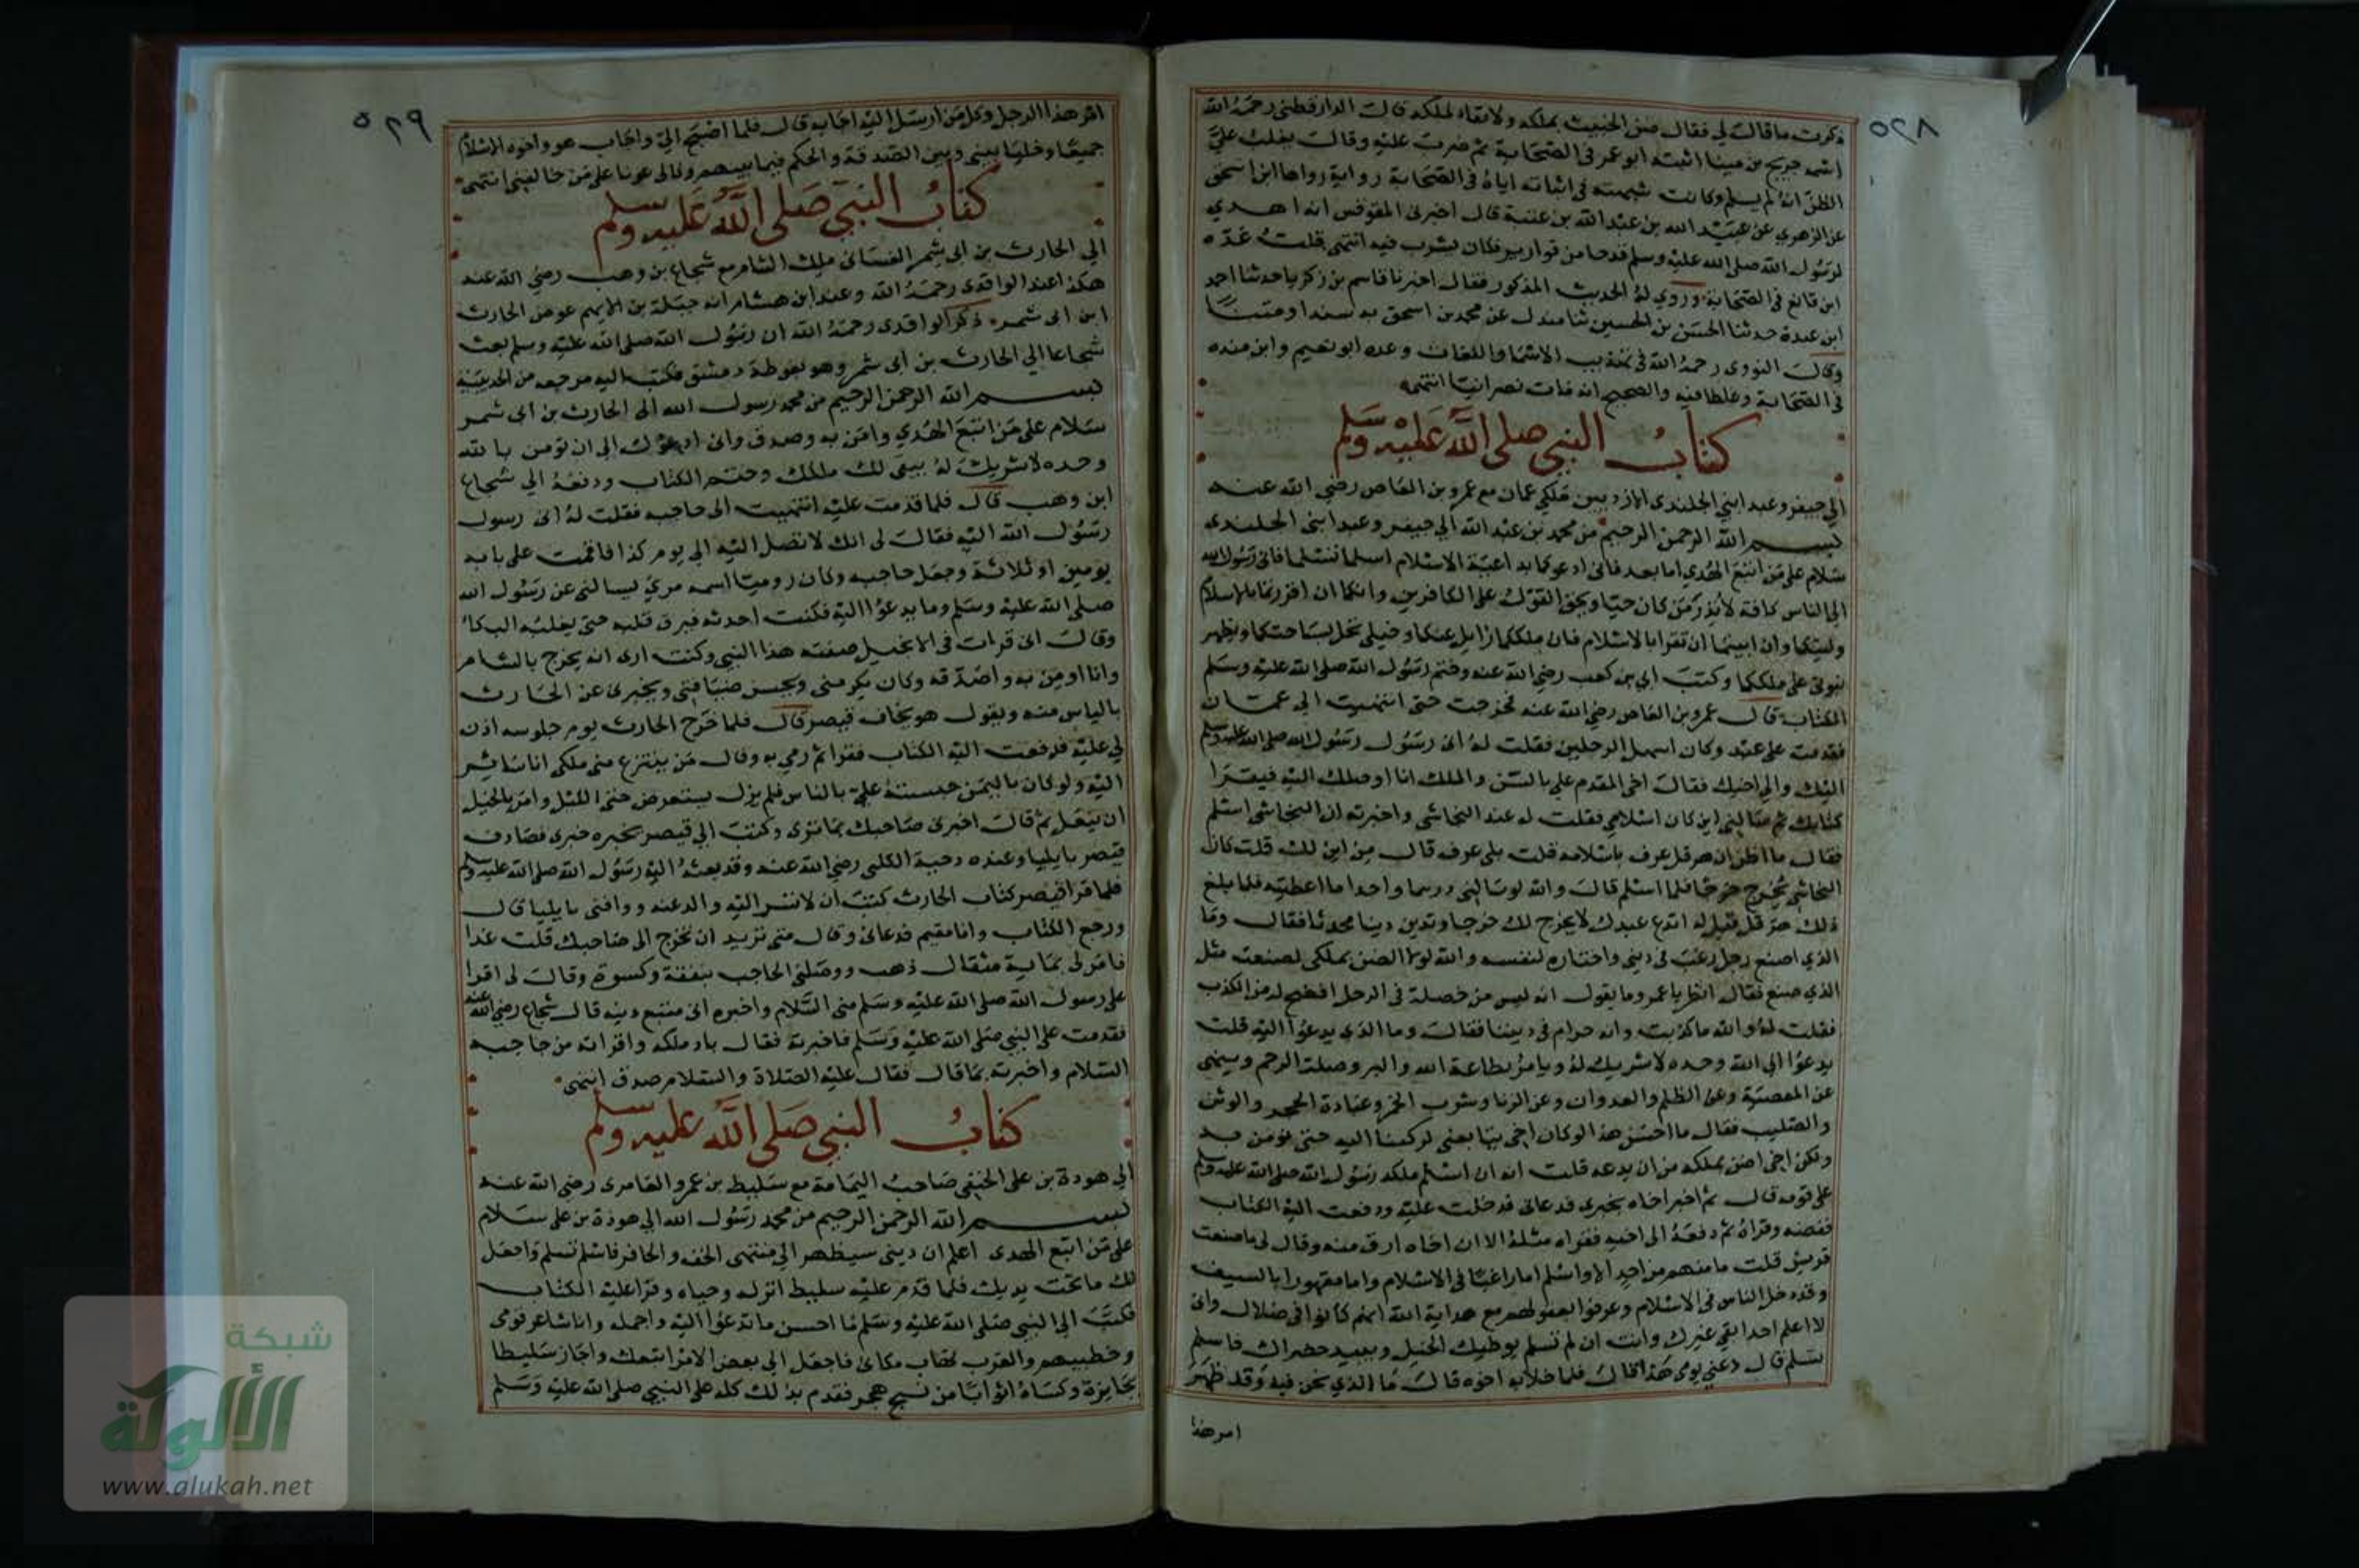 ٥٢٨
ذكرت ما قالت لي فقال ضن الخبيث بملكه ولا بقاء لملكه قال الدارقطني رحمه الله
اسمه جريج بن مينا اثبته ابو عمر في الصحابة ثم ضرب عليه وقال يغلب علي
الظن انه لم يسلم وكانت شبهته في اثباته اياه في الصحابة رواية رواها ابن اسحق
عن الزهري عن عبيد الله بن عبد الله بن عتبة قال اخبرني المقوقس انه اهدي
لرسول الله صلى الله عليه وسلم قدحا من قوارير فكان يشرب فيه انتهى قلت عده
ابن قانع في الصحابة وروي له الحديث المذكور فقال اخبرنا قاسم بن زكريا حدثنا احمد
ابن عبدة حدثنا الحسن بن الحسين ثنا مندل عن محمد بن اسحق به سندا ومتنا
وقال النووى رحمه الله في تهذيب الاسما واللغات وعده ابو نعيم وابن منده
في الصحابة وغلطا فيه والصحيح انه مات نصرانيا انتهى
كتاب النبي صلى الله عليه وسلم
الي جيفر وعبد ابني الجلندى الازديين ملكي عمان مع عمرو بن العاص رضي الله عنه
بسم الله الرحمن الرحيم من محمد بن عبد الله الي جيفر وعبد ابنى الجلندى
سلام على من اتبع الهدي اما بعد فانى ادعوكما بداعية الاسلام اسلما تسلما فانى رسول الله
الي الناس كافة لأنذر من كان حيا ويحق القول على الكافرين وانكما ان اقررتما بالاسلام
وليتكما وان ابيتما ان تقرا بالاسلام فان ملككما زايل عنكما وخيلي تحل بساحتكما وتظهر
نبوتى على ملككما وكتب ابي بن كعب رضي الله عنه وختم رسول الله صلى الله عليه وسلم
الكتاب قال عمرو بن العاص رضي الله عنه فخرجت حتى انتهيت الي عمان
فقدمت على عبد وكان اسهل الرجلين فقلت له انى رسول رسول الله صلى الله عليه وسلم
اليك والي اخيك فقال اخى المقدم علي بالسن والملك انا اوصلك اليه فيقرا
كتابك ثم سالني اين كان اسلامي فقلت له عند النجاشى واخبرته ان النجاشى اسلم
فقال ما اظن ان هرقل عرف باسلامه قلت بلى عرف قال من اين لك قلت كان
النجاشى يخرج خرجا فلما اسلم قال والله لو سالنى درهما واحدا ما اعطيته فلما بلغ
ذلك هرقل قيل له اتدع عبدك لا يخرج لك خرجا ويدين دينا محدثا فقال وما
الذي اصنع رجل رغب في دين واختاره لنفسه والله لولا الضن بملكى لصنعت مثل
الذي صنع فقال انظر يا عمرو ما تقول انه ليس من خصلة في الرجل افضح له من الكذب
فقلت له والله ما كذبت وانه حرام في ديننا فقال وما الذي يدعوا اليه قلت
يدعوا الي الله وحده لا شريك له ويامر بطاعة الله والبر وصلة الرحم وينهى
عن المعصية وعن الظلم والعدوان وعن الزنا وشرب الخمر وعبادة الحجر والوثن
والصليب فقال ما احسن هذا لو كان اخى يتابعنى لركبنا اليه حتى نؤمن به
ولكن اخى اضن بملكه من ان يدعه قلت انه ان اسلم ملكه رسول الله صلى الله عليه وسلم
على قومه قال ثم اخبر اخاه بخبرى فدعانى فدخلت عليه ودفعت اليه الكتاب
ففضه وقراه ثم دفعه الى اخيه فقراه مثله الا ان اخاه ارق منه وقال لى ما صنعت
قريش قلت ما منهم من احد الا واسلم اما راغبا في الاسلام واما مقهورا بالسيف
وقد دخل الناس في الاسلام وعرفوا بعقولهم مع هداية الله انهم كانوا في ضلال وانى
لا اعلم احدا بقي غيرك وانت ان لم تسلم يوطيك الخيل ويبيد خضراك فاسلم
تسلم قال دعني يومى هذا قال فلما خلا به اخوه قال ما الذي نحن فيه وقد ظهر
امر هذا
٥٢٩
امر هذا الرجل وكل من ارسل اليه اجابه قال فلما اصبح الي واجاب هو واخوه الاسلام
جميعا وخليا بينى وبين الصدقة والحكم فيما بينهم وكانا لى عونا على من خالفنى انتهى
كتاب النبي صلى الله عليه وسلم
الي الحارث بن ابى شمر الغسانى ملك الشام مع شجاع بن وهب رضي الله عنه
هكذا عند الواقدى رحمه الله وعند ابن هشام انه جبلة بن الايهم عوض الحارث
ابن ابى شمر ذكر الواقدى رحمه الله ان رسول الله صلى الله عليه وسلم بعث
شجاعا الي الحارث بن ابى شمر وهو بغوطة دمشق فكتب اليه مرجعه من الحديبية
بسم الله الرحمن الرحيم من محمد رسول الله الى الحارث بن ابى شمر
سلام على من اتبع الهدي وامن به وصدق وانى ادعوك الى ان تومن بالله
وحده لا شريك له يبقى لك ملكك وختم الكتاب ودفعه الي شجاع
ابن وهب قال فلما قدمت عليه انتهيت الى حاجبه فقلت له انى رسول
رسول الله اليه فقال لى انك لا تصل اليه الى يوم كذا فاقمت على بابه
يومين او ثلاثة وجعل حاجبه وكان روميا اسمه مري يسالنى عن رسول الله
صلى الله عليه وسلم وما يدعوا اليه فكنت احدثه فيرق قلبه حتى يغلبه البكا
وقال انى قرات في الانجيل صفته هذا النبي وكنت ارى انه يخرج بالشام
وانا اومن به واصدقه وكان يكرمنى ويحسن ضيافتى ويخبرى عن الحارث
بالياس منه ويقول هو يخاف قيصر قال فلما خرج الحارث يوم جلوسه اذن
لي عليه فدفعت اليه الكتاب فقرا ثم رمي به وقال من ينتزع منى ملكى انا ساير
اليه ولو كان باليمن جيسته علي بالناس فلم يزل يستعرض حتى الليل وامر بالخيل
ان تنعل ثم قال اخبرى صاحبك بما ترى وكتب الي قيصر يخبره خبرى فصادف
قيصر بايليا وعنده دحية الكلبى رضي الله عنه وقد بعثه اليه رسول الله صلى الله عليه وسلم
فلما قرا قيصر كتاب الحارث كتب ان لا تسر اليه واله عنه ووافنى بايليا قال
ورجع الكتاب وانا مقيم فدعانى وقال متى تريد ان تخرج الى صاحبك قلت غدا
فامر لى بماية مثقال ذهب ووصلنى الحاجب بنفقة وكسوة وقال لى اقرا
على رسول الله صلى الله عليه وسلم منى السلام واخبره انى متبع دينه قال شجاع رضي الله عنه
فقدمت على النبي صلى الله عليه وسلم فاخبرته فقال باد ملكه واقراته من حاجبه
السلام واخبرته بما قال فقال عليه الصلاة والسلام صدق انتهى
كتاب النبي صلى الله عليه وسلم
الي هودة بن على الحنفى صاحب اليمامة مع سليط بن عمرو العامرى رضي الله عنه
بسم الله الرحمن الرحيم من محمد رسول الله الي هوذة بن على سلام
على من اتبع الهدى اعلم ان دينى سيظهر الي منتهى الخف والحافر فاسلم تسلم واجعل
لك ما تحت يديك فلما قدم عليه سليط انزله وحياه وقرا عليه الكتاب
فكتب الي النبي صلى الله عليه وسلم ما احسن ما تدعوا اليه واجمله وانا شاعر قومى
وخطيبهم والعرب تهاب مكانى فاجعل الي بعض الامر اتبعك واجاز سليطا
بجايزة وكساه اثوابا من نسج هجر فقدم بذلك كله على النبي صلى الله عليه وسلم
شبكة
الألوكة
www.alukah.net